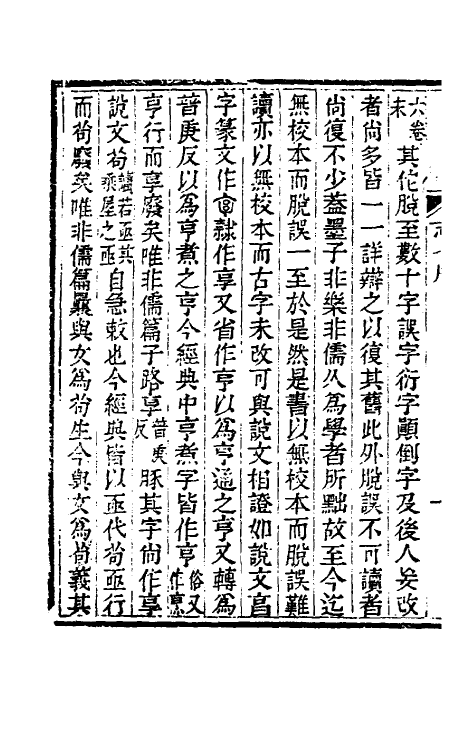 六卷未其佗脫至數十字誤字衍字顛倒字及後人妄改
者尚多皆一一詳辯之以復其舊此外脫誤不可讀者
尚復不少蓋墨子非樂非儒久為學者所黜故至今迄
無校本而脫誤一至於是然是書以無校本而脫誤難
讀亦以無校本而古字未改可與說文相證如說文𣆪
字篆文作亯隸作享又省作亨以為亨通之亨又轉為
普庚反以為亨煑之亨今經典中亨煑字皆作亨俗又作烹
亨行而享廢矣唯非儒篇子路享普庚反豚其字尚作享
說文茍讀若亟其乘屋之亟自急敕也今經典皆以亟代茍亟行
而茍廢矣唯非儒篇曩與女為茍生今與女為茍義其